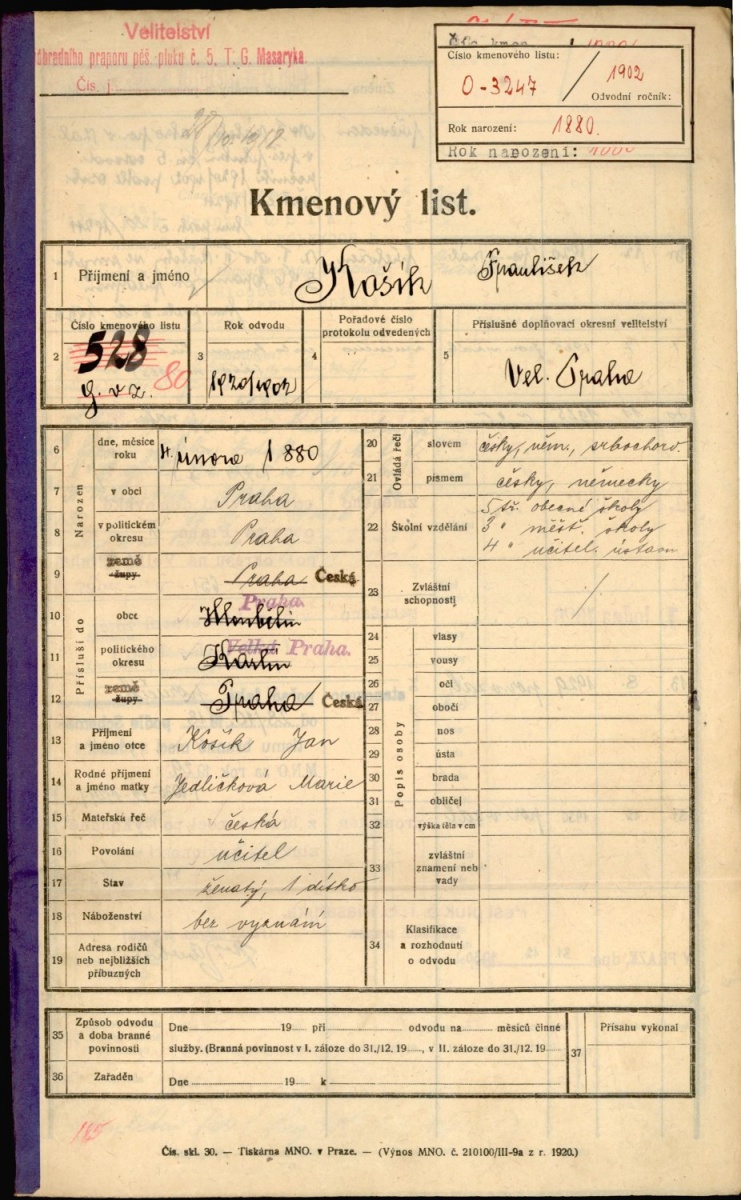 Velitelství
náhradního praporu pěš. pluku č. 5, T. G. Masaryka
Čís. j.
Číslo kmenového listu:
0-3247 / 1902
Odvodní ročník:
Rok narození: 1880.
Rok narození:
Kmenový list.
1 Příjmení a jméno Košík František
2 Číslo kmenového listu 528 80
3 Rok odvodu 1920/1902
4 Pořadové číslo protokolu odvedených
5 Příslušné doplňovací okresní velitelství Vel. Praha
Narozen
6 dne, měsíce roku 4. února 1880
7 v obci Praha
8 v politickém okresu Praha
9 země župy Praha Česká
Přísluší do
10 obce Praha. Hloubětín
11 politického okresu Velká Praha. Karlín
12 země župy Praha Česká
13 Příjmení a jméno otce Košík Jan
14 Rodné příjmení a jméno matky Jedličková Marie
15 Mateřská řeč česká
16 Povolání učitel
17 Stav ženatý, 1 dítko
18 Náboženství bez vyznání
19 Adresa rodičů neb nejbližších příbuzných
Ovládá řeči
20 slovem česky, něm., srbochorv.
21 písmem česky, německy
22 Školní vzdělání 5 tř. obecné školy
3 " měšť. školy
4 " učitel. ústavu
23 Zvláštní schopnosti /
Popis osoby
24 vlasy
25 vousy
26 oči
27 obočí
28 nos
29 ústa
30 brada
31 obličej
32 výška těla v cm
33 zvláštní znamení neb vady
34 Klasifikace a rozhodnutí o odvodu
35 Způsob odvodu a doba branné povinnosti
Dne 19 při odvodu na měsíců činné
služby. (Branná povinnost v I. záloze do 31./12. 19 , v II. záloze do 31./12. 19
36 Zařaděn Dne 19 k
37 Přísahu vykonal
185
Čís. skl. 30. — Tiskárna MNO. v Praze. — (Výnos MNO. č. 210100/III-9a z r. 1920.)